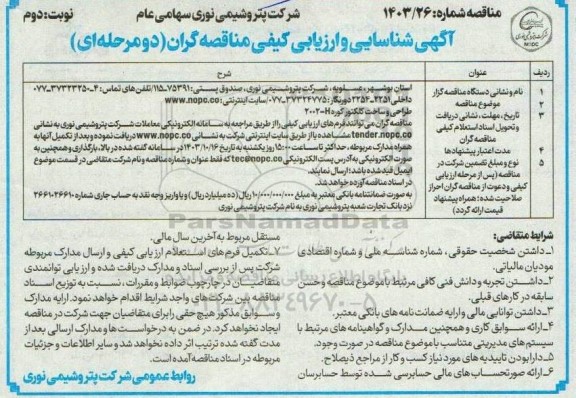 مناقصه شماره: ۱۴۰۳/۲۶
شرکت پتروشیمی نوری سهامی عام
نوبت: دوم
آگهی شناسایی و ارزیابی کیفی مناقصه گران (دو مرحله ای)
NIDC
ردیف عنوان شرح
۱ نام و نشانی دستگاه مناقصه گزار
استان بوشهر، عسلویه، شرکت پتروشیمی نوری، صندوق پستی: ۷۵۳۹۱-۱۱۵ تلفن های تماس: ۴-۳۷۳۲۳۲۵۰-۰۷۷
داخلی ۲۲۵۱-۲۲۵۴ دورنگار: ۳۷۳۲۴۷۷۵-۰۷۷ سایت اینترنتی: www.nopc.co
۲ موضوع مناقصه
طراحی و ساخت کلکتور کوره 2002-H
۳ تاریخ، مهلت، نشانی دریافت و تحویل اسناد استعلام کیفی مناقصه گران
مناقصه گران می توانند فرم های ارزیابی کیفی را از طریق مراجعه به سامانه الکترونیکی معاملات شرکت پتروشیمی نوری به نشانی
tender.nopc.co مشاهده یا از طریق سایت اینترنتی شرکت به نشانی www.nopc.co دریافت نموده و بعد از تکمیل آنها به
همراه مدارک مربوطه، حداکثر تا ساعت ۱۵:۰۰ روز یکشنبه به تاریخ ۱۴۰۳/۱۰/۱۶ در سامانه گفته شده در بالا، بارگذاری و همچنین به
صورت الکترونیکی به آدرس پست الکترونیکی tec@nopc.co که فقط عنوان و شماره مناقصه و نام شرکت متقاضی در قسمت موضوع
ایمیل قید شده باشد؛ ارسال نمایند.
۴ مدت اعتبار پیشنهادها
در اسناد مناقصه آورده خواهد شد.
۵ نوع و مبلغ تضمین شرکت در مناقصه (پس از مرحله ارزیابی کیفی و دعوت از مناقصه گران احراز صلاحیت شده؛ همراه پیشنهاد قیمت ارائه گردد)
به صورت ضمانتنامه بانکی معتبر به مبلغ ۱۰/۰۰۰/۰۰۰/۰۰۰ ریال (ده میلیارد ریال) و یا واریز وجه نقد به حساب جاری شماره ۳۶۶۱۰۳۶۶۱۰
نزد بانک تجارت شعبه پتروشیمی نوری به نام شرکت پتروشیمی نوری
شرایط متقاضی:
۱ـ داشتن شخصیت حقوقی، شماره شناسه ملی و شماره اقتصادی
مودیان مالیاتی.
۲ـ داشتن تجربه و دانش فنی کافی مرتبط با موضوع مناقصه و حسن
سابقه در کارهای قبلی.
۳ـ داشتن توانایی مالی و ارایه ضمانت نامه های بانکی معتبر.
۴ـ ارائه سوابق کاری و همچنین مدارک و گواهینامه های مرتبط با
سیستم های مدیریتی متناسب با موضوع مناقصه در صورت وجود.
۵ـ دارا بودن تاییدیه های مورد نیاز کسب و کار از مراجع ذیصلاح.
۶ـ ارائه صورتحساب های مالی حسابرسی شده توسط حسابرسان
مستقل مربوط به آخرین سال مالی.
۷ـ تکمیل فرم های استعلام ارزیابی کیفی و ارسال مدارک مربوطه
شرکت پس از بررسی اسناد و مدارک دریافت شده و ارزیابی توانمندی
متقاضیان در چارچوب ضوابط و مقررات، نسبت به توزیع اسناد
مناقصه بین شرکت های واجد شرایط اقدام خواهد نمود. ارایه مدارک
و سوابق مذکور هیچ حقی را برای متقاضیان جهت شرکت در مناقصه
ایجاد نخواهد کرد. در ضمن به درخواست ها و مدارک ارسالی بعد از
مدت گفته شده ترتیب اثر داده نخواهد شد و سایر اطلاعات و جزئیات
مربوطه در اسناد مناقصه آمده است.
روابط عمومی شرکت پتروشیمی نوری
ParsNamadData